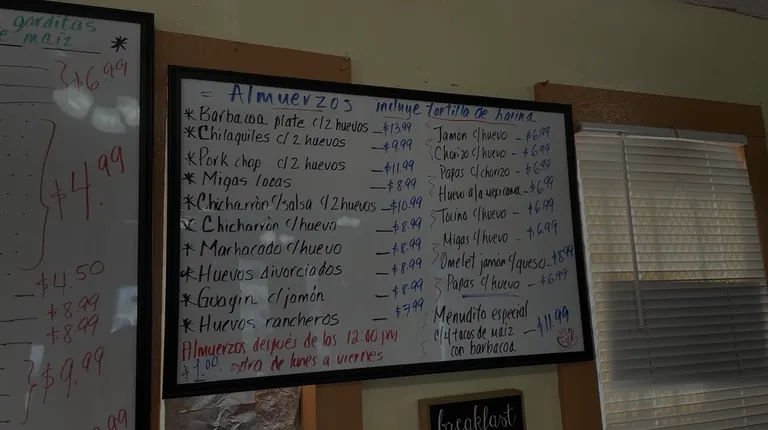 gorditas
de maíz *
$6.99
$4.99
$4.50
$8.99
$8.99
$9.99
.99
= Almuerzos incluye tortilla de harina
* Barbacoa plate c/2 huevos - $13.99
* Chilaquiles c/2 huevos - $9.99
* Pork chop c/2 huevos - $11.99
* Migas locas - $8.99
* Chicharrón c/salsa c/2 huevos - $10.99
* Chicharrón c/huevo - $8.99
* Machacado c/huevo - $8.99
* Huevos divorciados - $8.99
* Guagin c/jamón - $8.99
* Huevos rancheros - $7.99
Almuerzos después de las 12:00 pm
$1.00 extra de lunes a viernes
Jamón c/huevo - $6.99
Chorizo c/huevo - $6.99
Papas c/chorizo - $6.99
Huevo a la mexicana - $6.99
Tocino c/huevo - $6.99
Migas c/huevo - $6.99
Omelet jamón c/queso - $8.99
Papas c/huevo - $6.99
Menudito especial
c/4 tacos de maíz - $11.99
con barbacoa
breakfast